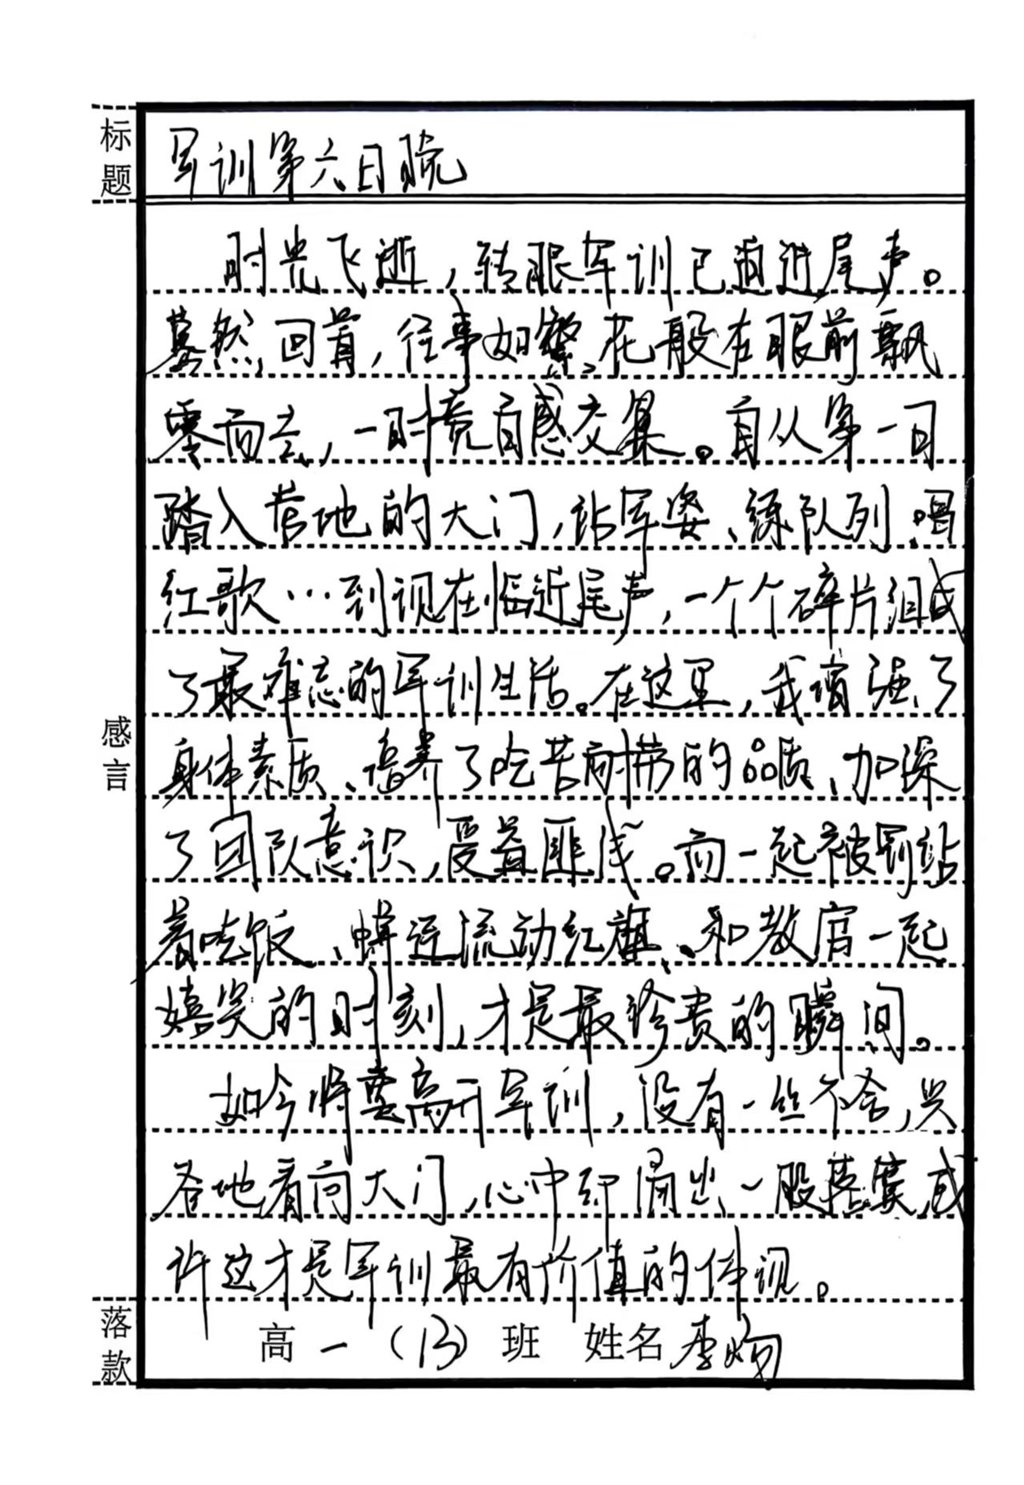 标题
军训第六日晚
时光飞逝,转眼军训已逼近尾声。
蓦然回首,往事如繁花般在眼前飘
零而去,一时竟百感交集。自从第一日
踏入营地的大门,站军姿、练队列、唱
红歌…到现在临近尾声,一个个碎片组成
了最难忘的军训生活。在这里,我增强了
身体素质、培养了吃苦耐劳的品质、加深
了团队意识,受益匪浅。而一起被罚站
着吃饭、蝉连流动红旗、和教官一起
嬉笑的时刻,才是最珍贵的瞬间。
如今将要离开军训,没有一丝不舍,兴
奋地看向大门,心中却涌出一股落寞,或
许这才是军训最有价值的体现。
感言
落款
高一(13)班 姓名 李